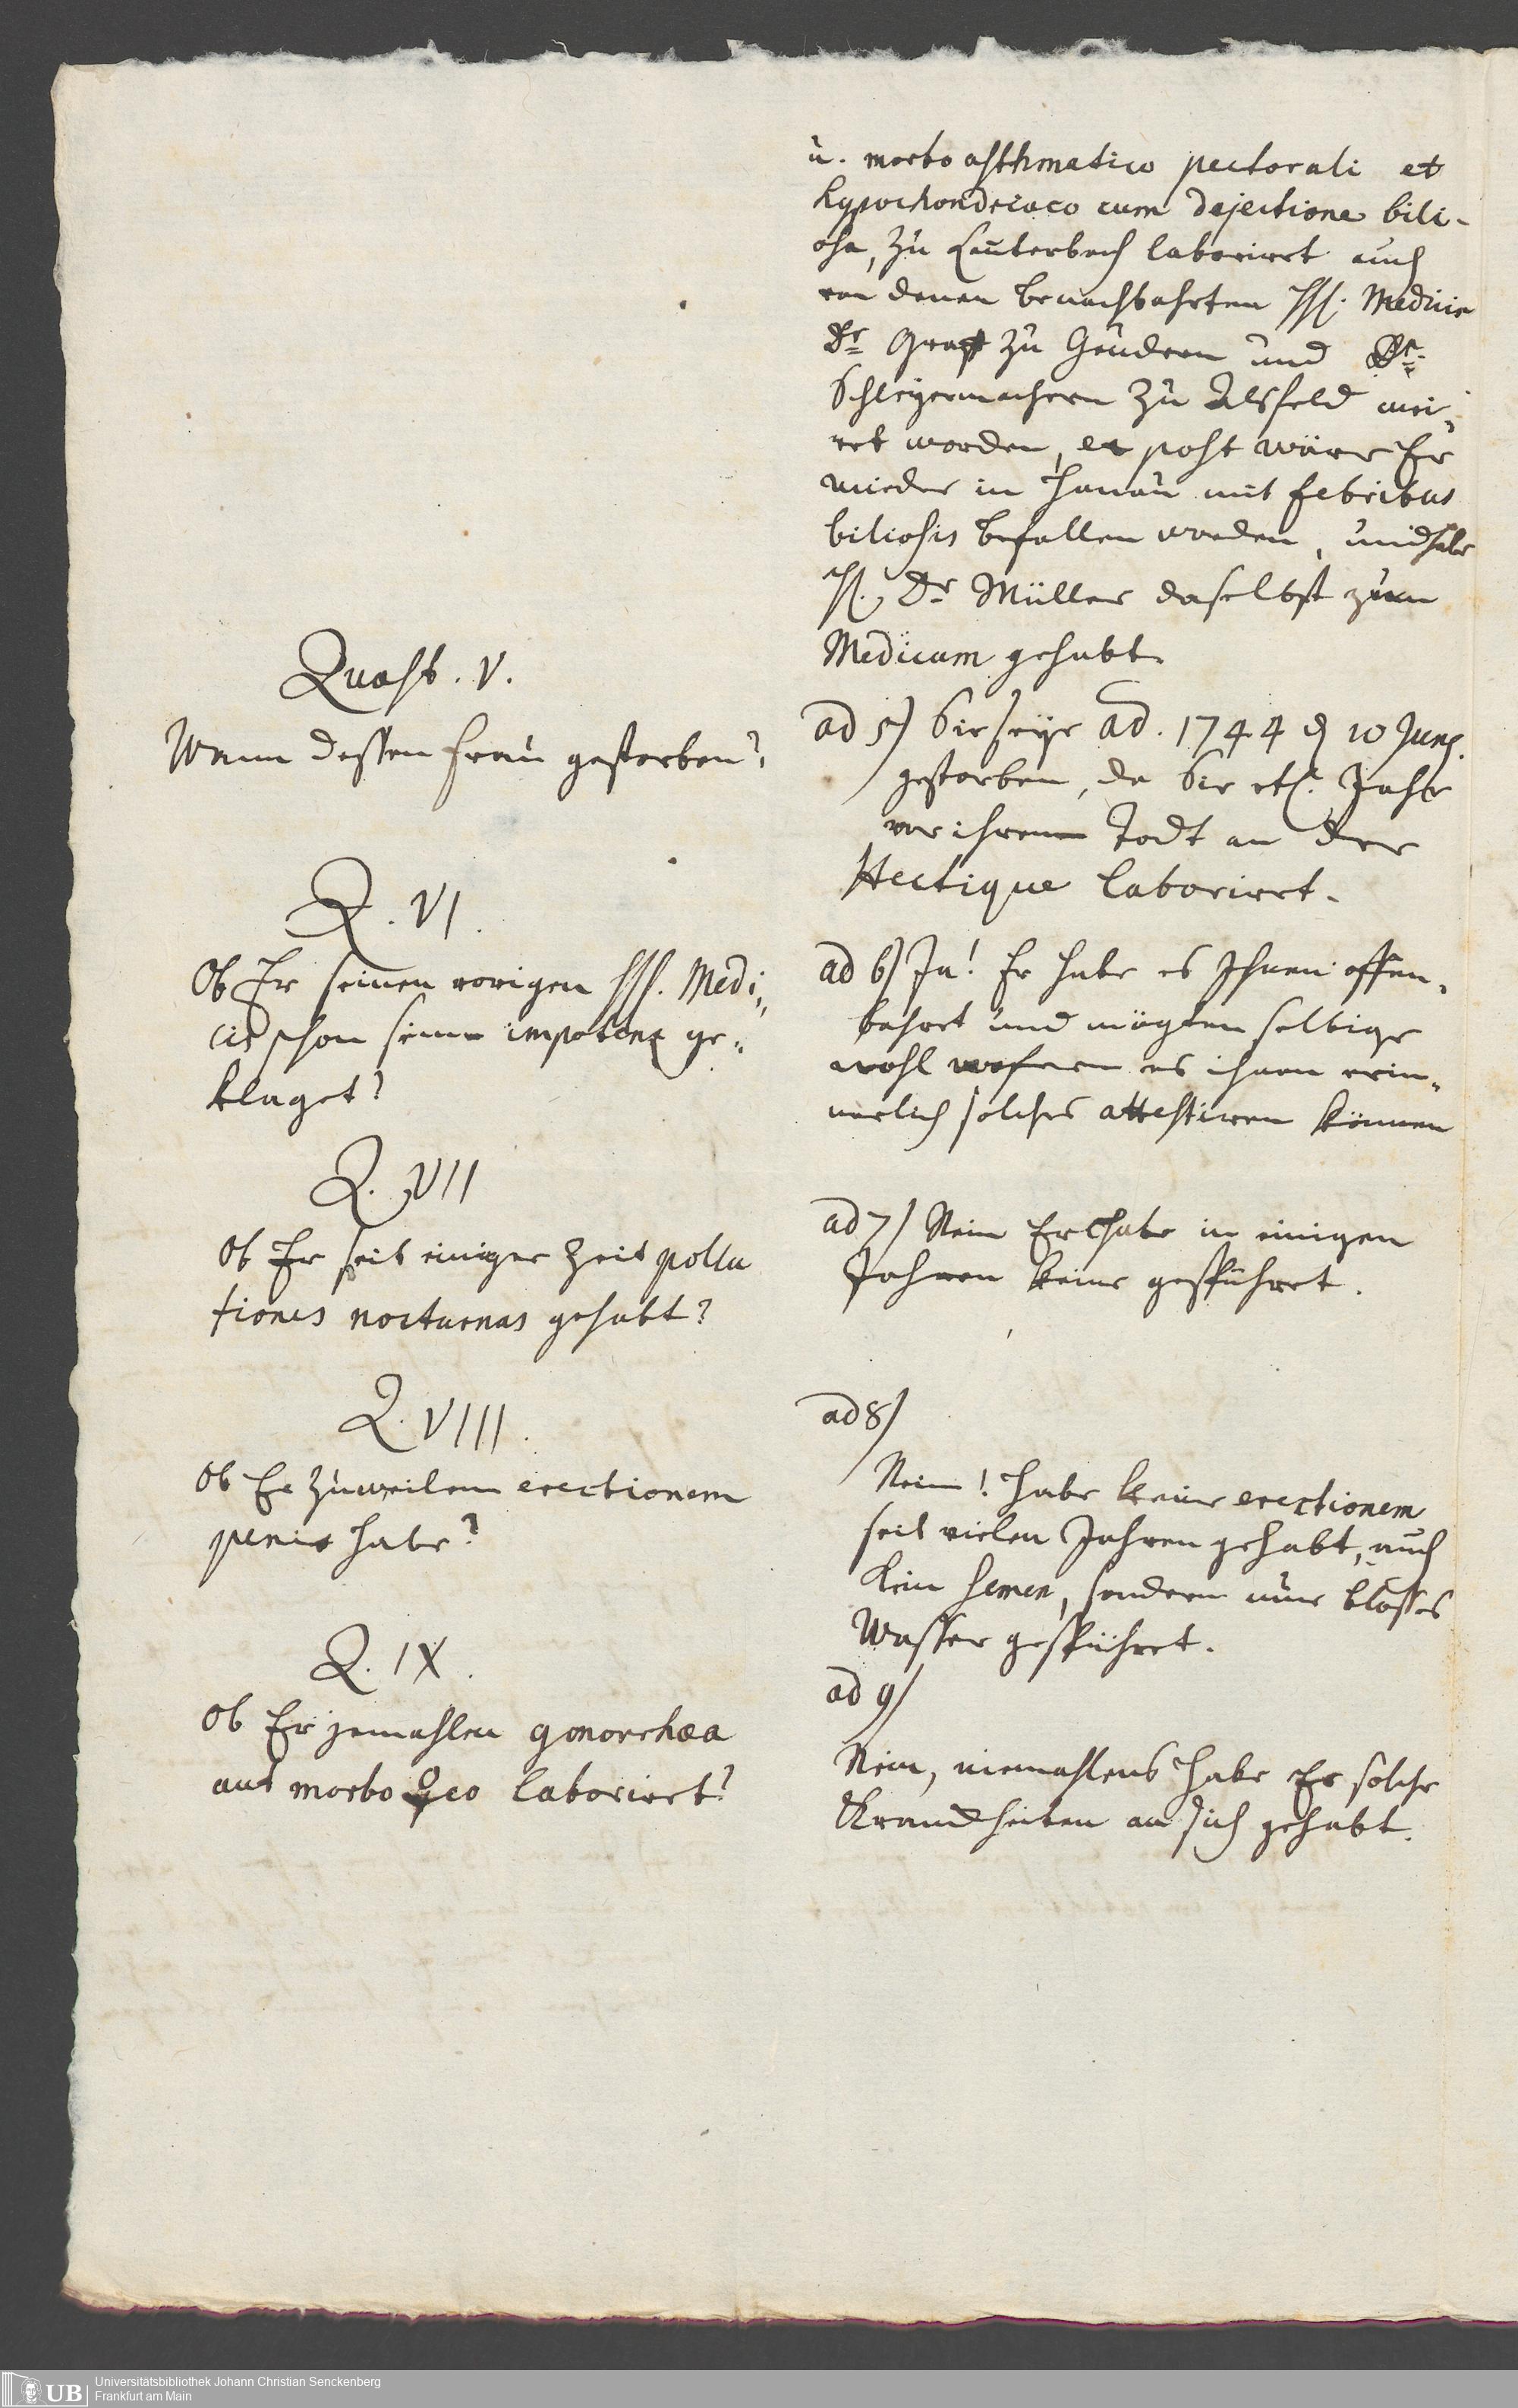 u. morbo asthmatico pectorali et
hypochondriaco cum dejectione bili-
osa, zu Lauterbach laborirt auch
von denen benachbahrten HH. Medicis
Dr Graff zu Geudern und Dr.
Schleyermachern zu Alsfeld
worden, et post wäre Er
wieder in Hanau mit febribus
biliosis befallen worden, und habe
H. Dr Müller daselbst zum
Medicum gehabt.
Quæst. V.
Wann dessen Frau gestorben?
ad 5) Sie seye ad. 1744 d 10 Junj.
gestorben, da Sie etl. Jahr
vor ihrem Todt an der
Hectique laborirt.
Q. VI.
Ob Er seinen vorigen HH. Medi-
cis schon seine impotenz ge-
klaget?
ad 6) Ja! Er habe es Ihnen offen-
bahrt und mögten selbige
wohl wofern es ihnen erin-
nerlich solches attestiren können
Q. VII
Ob Er seit einiger Zeit pollu
tiones nocturnas gehabt?
ad 7) Nein Er habe in einigen
Jahren keine gespühret.
Q. VIII.
Ob Er zuweilen erectionem
penis habe?
ad 8)
Nein! habe keine erectionem
seit vielen Jahren gehabt, auch
kein semen, sondern nur blosses
Wasser gespühret.
Q. IX.
Ob Er jemahlen gonorrhœa
aut morbo ♀eo laborirt?
ad 9)
Nein, niemahlens habe Er solche
Kranckheiten an sich gehabt.
UB
Universitätsbibliothek Johann Christian Senckenberg
Frankfurt am Main